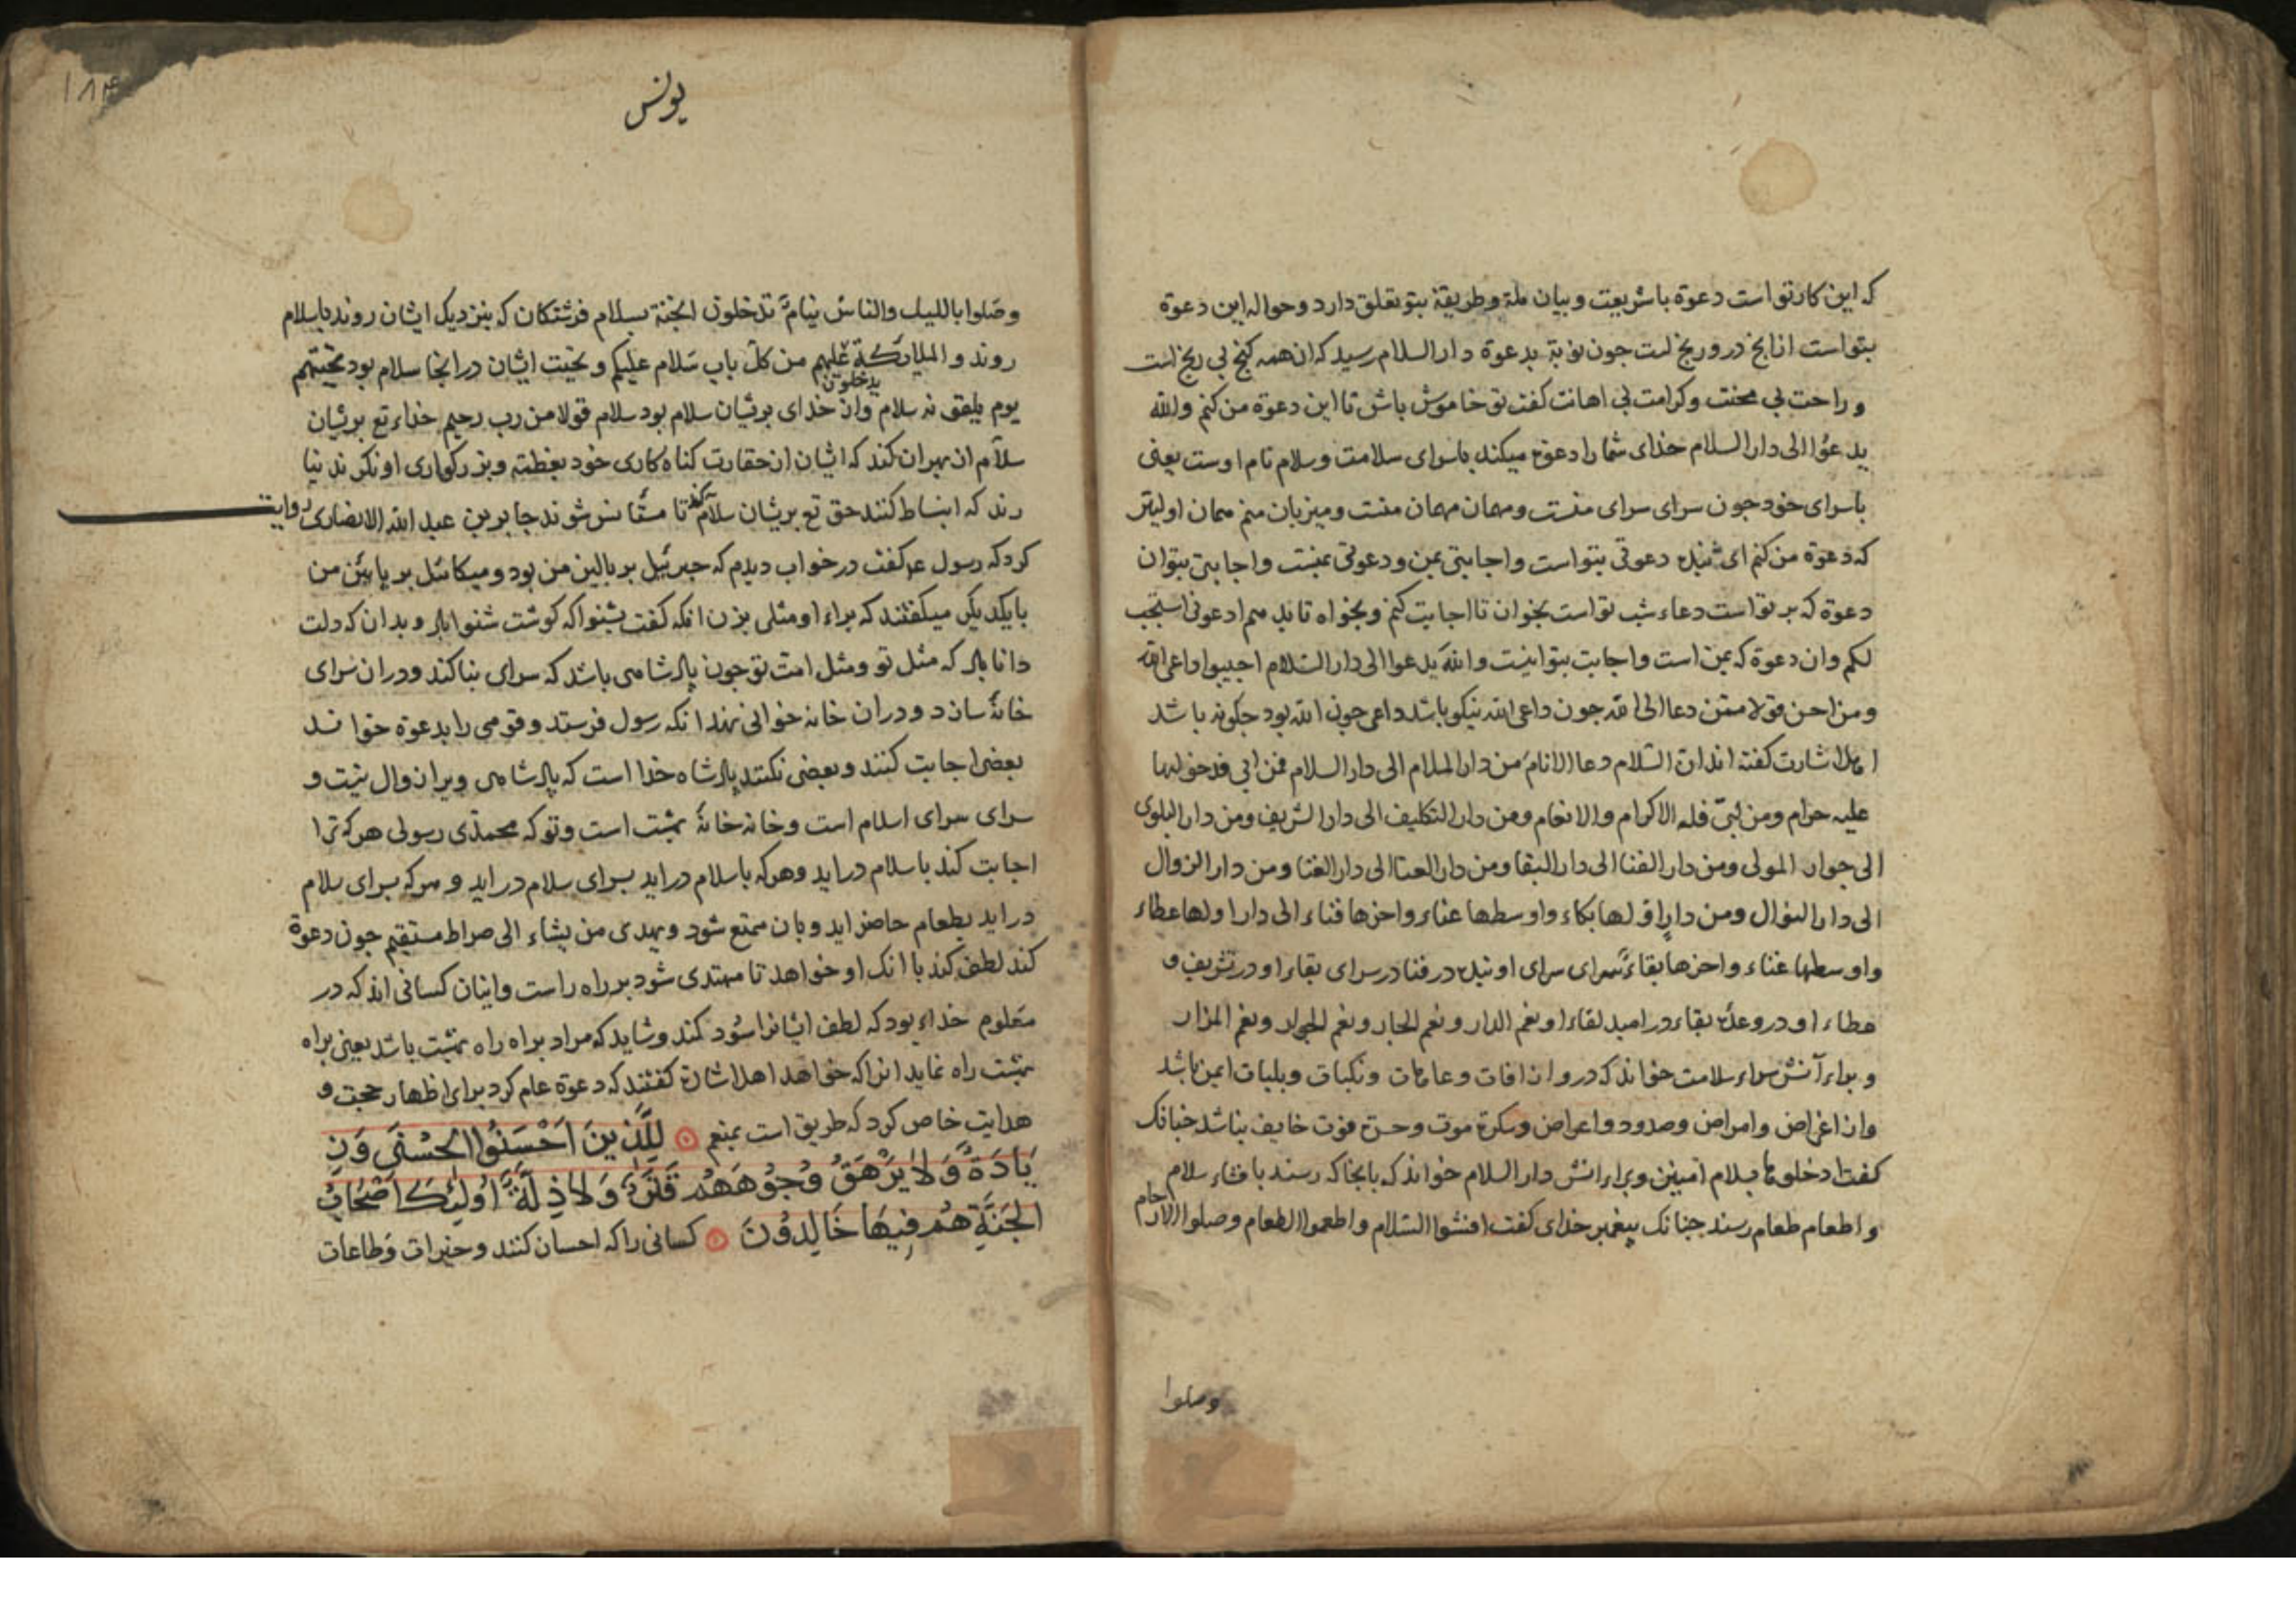 که این کار تو است دعوة باشریعت و بیان ملة و طریقة بتو تعلق دارد و حواله این دعوة
بتو است انانج در و رنج است جون نوبة بدعوة دار السلام رسید که ان همه کنج بی رنج است
و راحت بی محنت و کرامت بی اهانت کفت تو خاموش باش تا این دعوة من کنم والله
یدعوا الی دار السلام خدای شما را دعوة میکند باسرای سلامت و سلام نام اوست یعنی
باسرای خود جون سرای سرای منست و مهمان مهمان منست و میزبان منم مهمان اولیتر
که دعوة من کنم ای بنده دعوتی بتو است و اجابتی بمن و دعوتی بمنست و اجابتی بتو ان
دعوة که بر تو است دعاء شب تو است بخوان تا اجابت کنم و بخواه تا بدهم ادعونی استجب
لکم و ان دعوة که بمن است و اجابت بتو اینست والله یدعوا الی دار السلام اجیبوا داعی الله
ومن احسن قولا ممن دعا الی الله جون داعی الله نیکو باشد داعی جون الله بود جکونه باشد
اهل اشارت کفته اند ان السلام دعا الانام من دار الملام الی دار السلام فمن ابی فدخولها
علیه حرام ومن لبی فله الاکرام والانعام ومن دار التکلیف الی دار الشریف ومن دار البلوی
الی جوار المولی ومن دار الفنا الی دار البقا ومن دار العنا الی دار الغنا ومن دار الزوال
الی دار النوال ومن دار اولها بکاء واوسطها عناء واخرها فناء الی دار اولها عطاء
واوسطها غناء واخرها بقاء سرای سرای او بنده در فنا در سرای بقاء او در تشریف و
عطاء او در وعده بقاء در امید لقاء او نعم الدار و نعم الجار و نعم الجوار و نعم المزار
و براء آنش سراء سلامت خواند که در و از افات و عاهات و نکبات و بلیات ایمن باشد
و از اغراض و امراض و صدود و اعراض و سکرة موت و حسرة فوت خایف نباشد جنانک
کفت ادخلوها بسلام امنین و براء انش دار السلام خواند که بانجا که رسند بافشاء سلام
و اطعام طعام رسند جنانک پیغمبر خدای کفت افشوا السلام واطعموا الطعام وصلوا الارحام
وصلوا
۱۸۴
یونس
وصلوا باللیل والناس نیام تدخلون الجنة بسلام فرشتکان که بنزدیک ایشان روند باسلام
روند والملائکة یدخلون علیهم من کل باب سلام علیکم و تحیت ایشان در انجا سلام بود تحیتهم
یوم یلقونه سلام و ان خدای بریشان سلام بود سلام قولا من رب رحیم خداء تع بریشان
سلام از بهر ان کند که ایشان از حقارت کناه کاری خود بعظمته و بزرکواری او نکرند نیا
رند که انبساط کنند حق تع بریشان سلام کند تا مستأنس شوند جابر بن عبد الله الانصاری روایت
کرد که رسول عم کفت در خواب دیدم که جبرئیل بر بالین من بود و میکائیل بر پایین من
بایکدیکر میکفتند که براء او مثلی بزن انکه کفت بشنو که کوشت شنوا باد و بدان که دلت
دانا باد که مثل تو و مثل امت تو جون پادشاهی باشد که سرای بنا کند و در ان سرای
خانهٔ سازد و در ان خانه خوانی نهد انکه رسول فرستد و قومی را بدعوة خواند
بعضی اجابت کنند و بعضی نکنند پادشاه خدا است که پادشاهی ویرا زوال نیست و
سرای سرای اسلام است و خانه خانهٔ بهشت است و تو که محمدی رسولی هر که ترا
اجابت کند باسلام دراید و هر که باسلام دراید بسرای سلام دراید و هر که بسرای سلام
دراید بطعام حاضر اید و بان ممتع شود ویهدی من یشاء الی صراط مستقیم جون دعوة
کند لطف کند با انک او خواهد تا مهتدی شود بر راه راست و اینان کسانی اند که در
معلوم خداء بود که لطف ایشانرا سود کند و شاید که مراد براه راه بهشت باشد یعنی براه
بهشت راه نماید انرا که خواهد اهل اشارة کفتند که دعوة عام کرد برای اظهار حجت و
هدایت خاص کرد که طریق است بمنعم لِلَّذِينَ اَحْسَنُوا الْحُسْنَی وَزِ
یَادَةٌ وَلَا یَرْهَقُ وُجُوهَهُمْ قَتَرٌ وَلَا ذِلَّةٌ اُولٰئِكَ اَصْحَابُ
الْجَنَّةِ هُمْ فِیهَا خَالِدُونَ کسانی را که احسان کنند و خیرات و طاعات